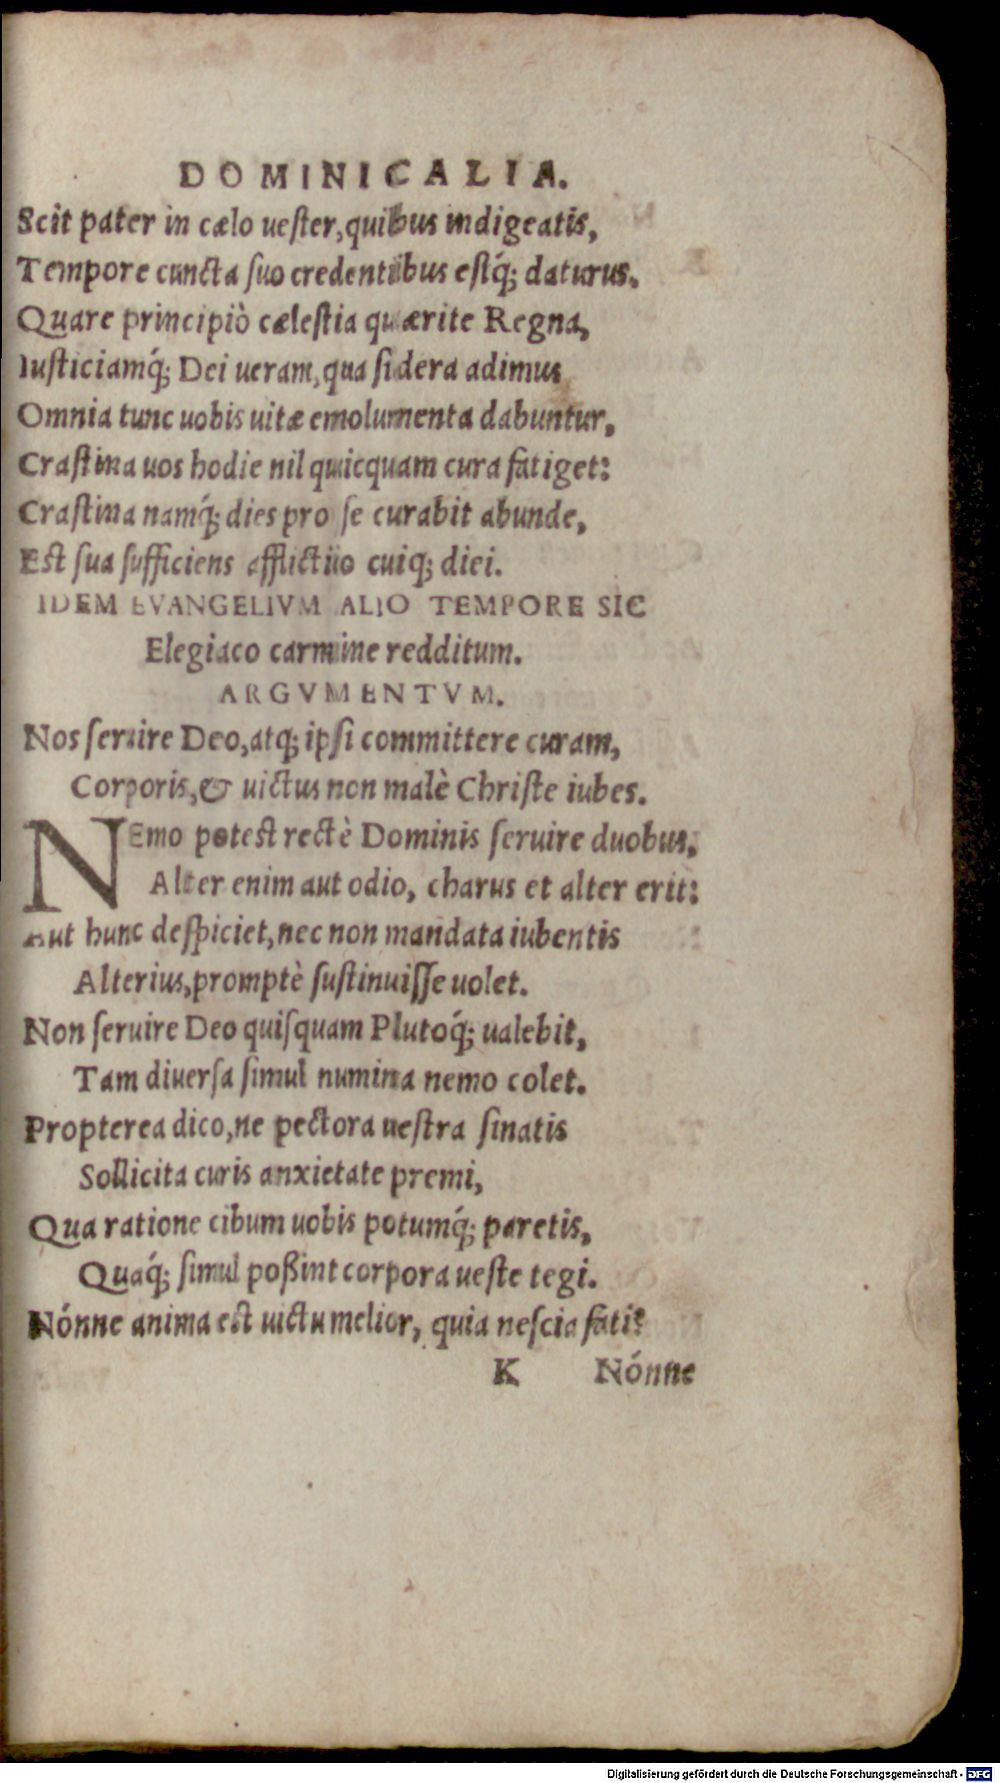 DOMINICALIA.
Scit pater in cælo uester, quibus indigeatis,
Tempore cuncta suo credentibus estq́; daturus.
Quare principiò cælestia quærite Regna,
Iusticiamq́; Dei ueram, qua sidera adimus
Omnia tunc uobis uitæ emolumenta dabuntur,
Crastina uos hodie nil quicquam cura fatiget:
Crastina namq́; dies pro se curabit abunde,
Est sua sufficiens afflictio cuiq; diei.
IDEM EVANGELIVM ALIO TEMPORE SIC
Elegiaco carmine redditum.
ARGVMENTVM.
Nos seruire Deo, atq; ipsi committere curam,
Corporis, & uictus non malè Christe iubes.
NEmo potest rectè Dominis seruire duobus,
Alter enim aut odio, charus et alter erit:
Aut hunc despiciet, nec non mandata iubentis
Alterius, promptè sustinuisse uolet.
Non seruire Deo quisquam Plutoq́; ualebit,
Tam diuersa simul numina nemo colet.
Propterea dico, ne pectora uestra sinatis
Sollicita curis anxietate premi,
Qua ratione cibum uobis potumq́; paretis,
Quaq́; simul poßint corpora ueste tegi.
Nónne anima est uictu melior, quia nescia fati?
K Nónne
Digitalisierung gefördert durch die Deutsche Forschungsgemeinschaft - DFG